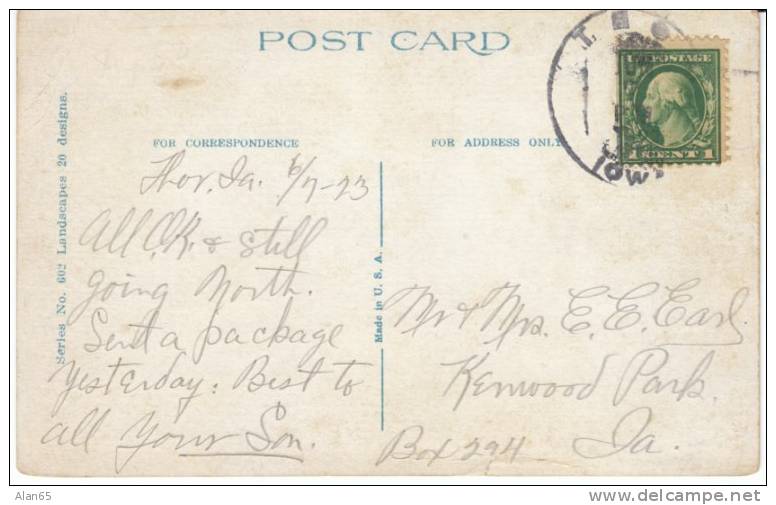 POST CARD
FOR CORRESPONDENCE
FOR ADDRESS ONLY
Thor, Ia. 6/7-23
All O.K. & still
going North.
Sent a package
yesterday. Best to
all Your Son.
Mr & Mrs. E. E. Earl.
Kenwood Park.
Box 294 Ia.
Series No. 602 Landscapes 20 designs.
Made in U. S. A.
U.S. POSTAGE
1 CENT 1
IOWA
Alan65
delcampe.net